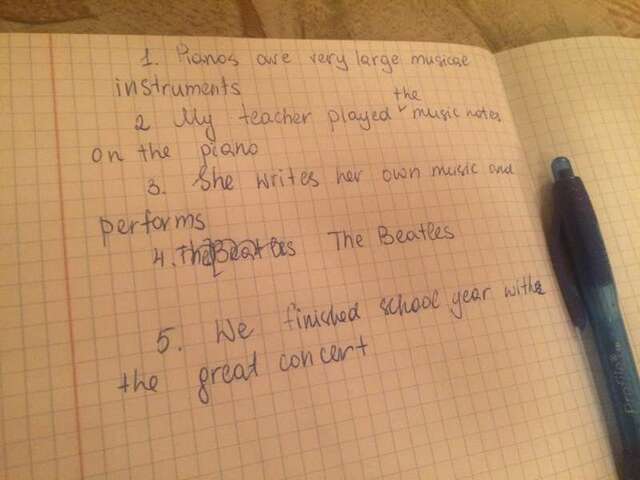 1. Pianos are very large musical
instruments
2 My teacher played the music notes
on the piano
3. She writes her own music and
performs
4. The Beatles The Beatles
5. We finished school year with a
the great concert
Profile